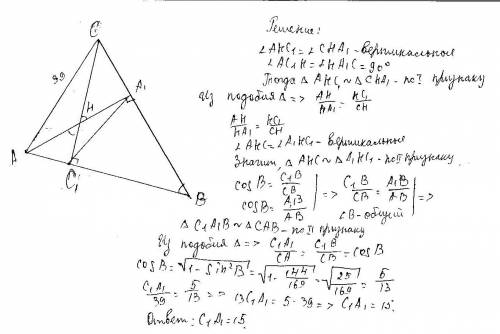 C
39
A₁
H
A
C₁
B
Решение:
∠AHC₁ = ∠CHA₁ - вертикальные
∠AC₁H = ∠HA₁C = 90°
Тогда △AHC₁ ~ △CHA₁ - по I признаку
Из подобия △ => AH/HA₁ = HC₁/CH
AH/HA₁ = HC₁/CH
∠AHC = ∠A₁HC₁ - вертикальные
Значит, △AHC ~ △A₁HC₁ - по II признаку
cos B = C₁B/CB
cos B = A₁B/AB | => C₁B/CB = A₁B/AB | =>
∠B - общий
△C₁A₁B ~ △CAB - по II признаку
Из подобия △ => C₁A₁/CA = C₁B/CB = cos B
cos B = √(1 - sin²B) = √(1 - 144/169) = √(25/169) = 5/13
C₁A₁/39 = 5/13 => 13C₁A₁ = 5 · 39 => C₁A₁ = 15.
Ответ: C₁A₁ = 15.